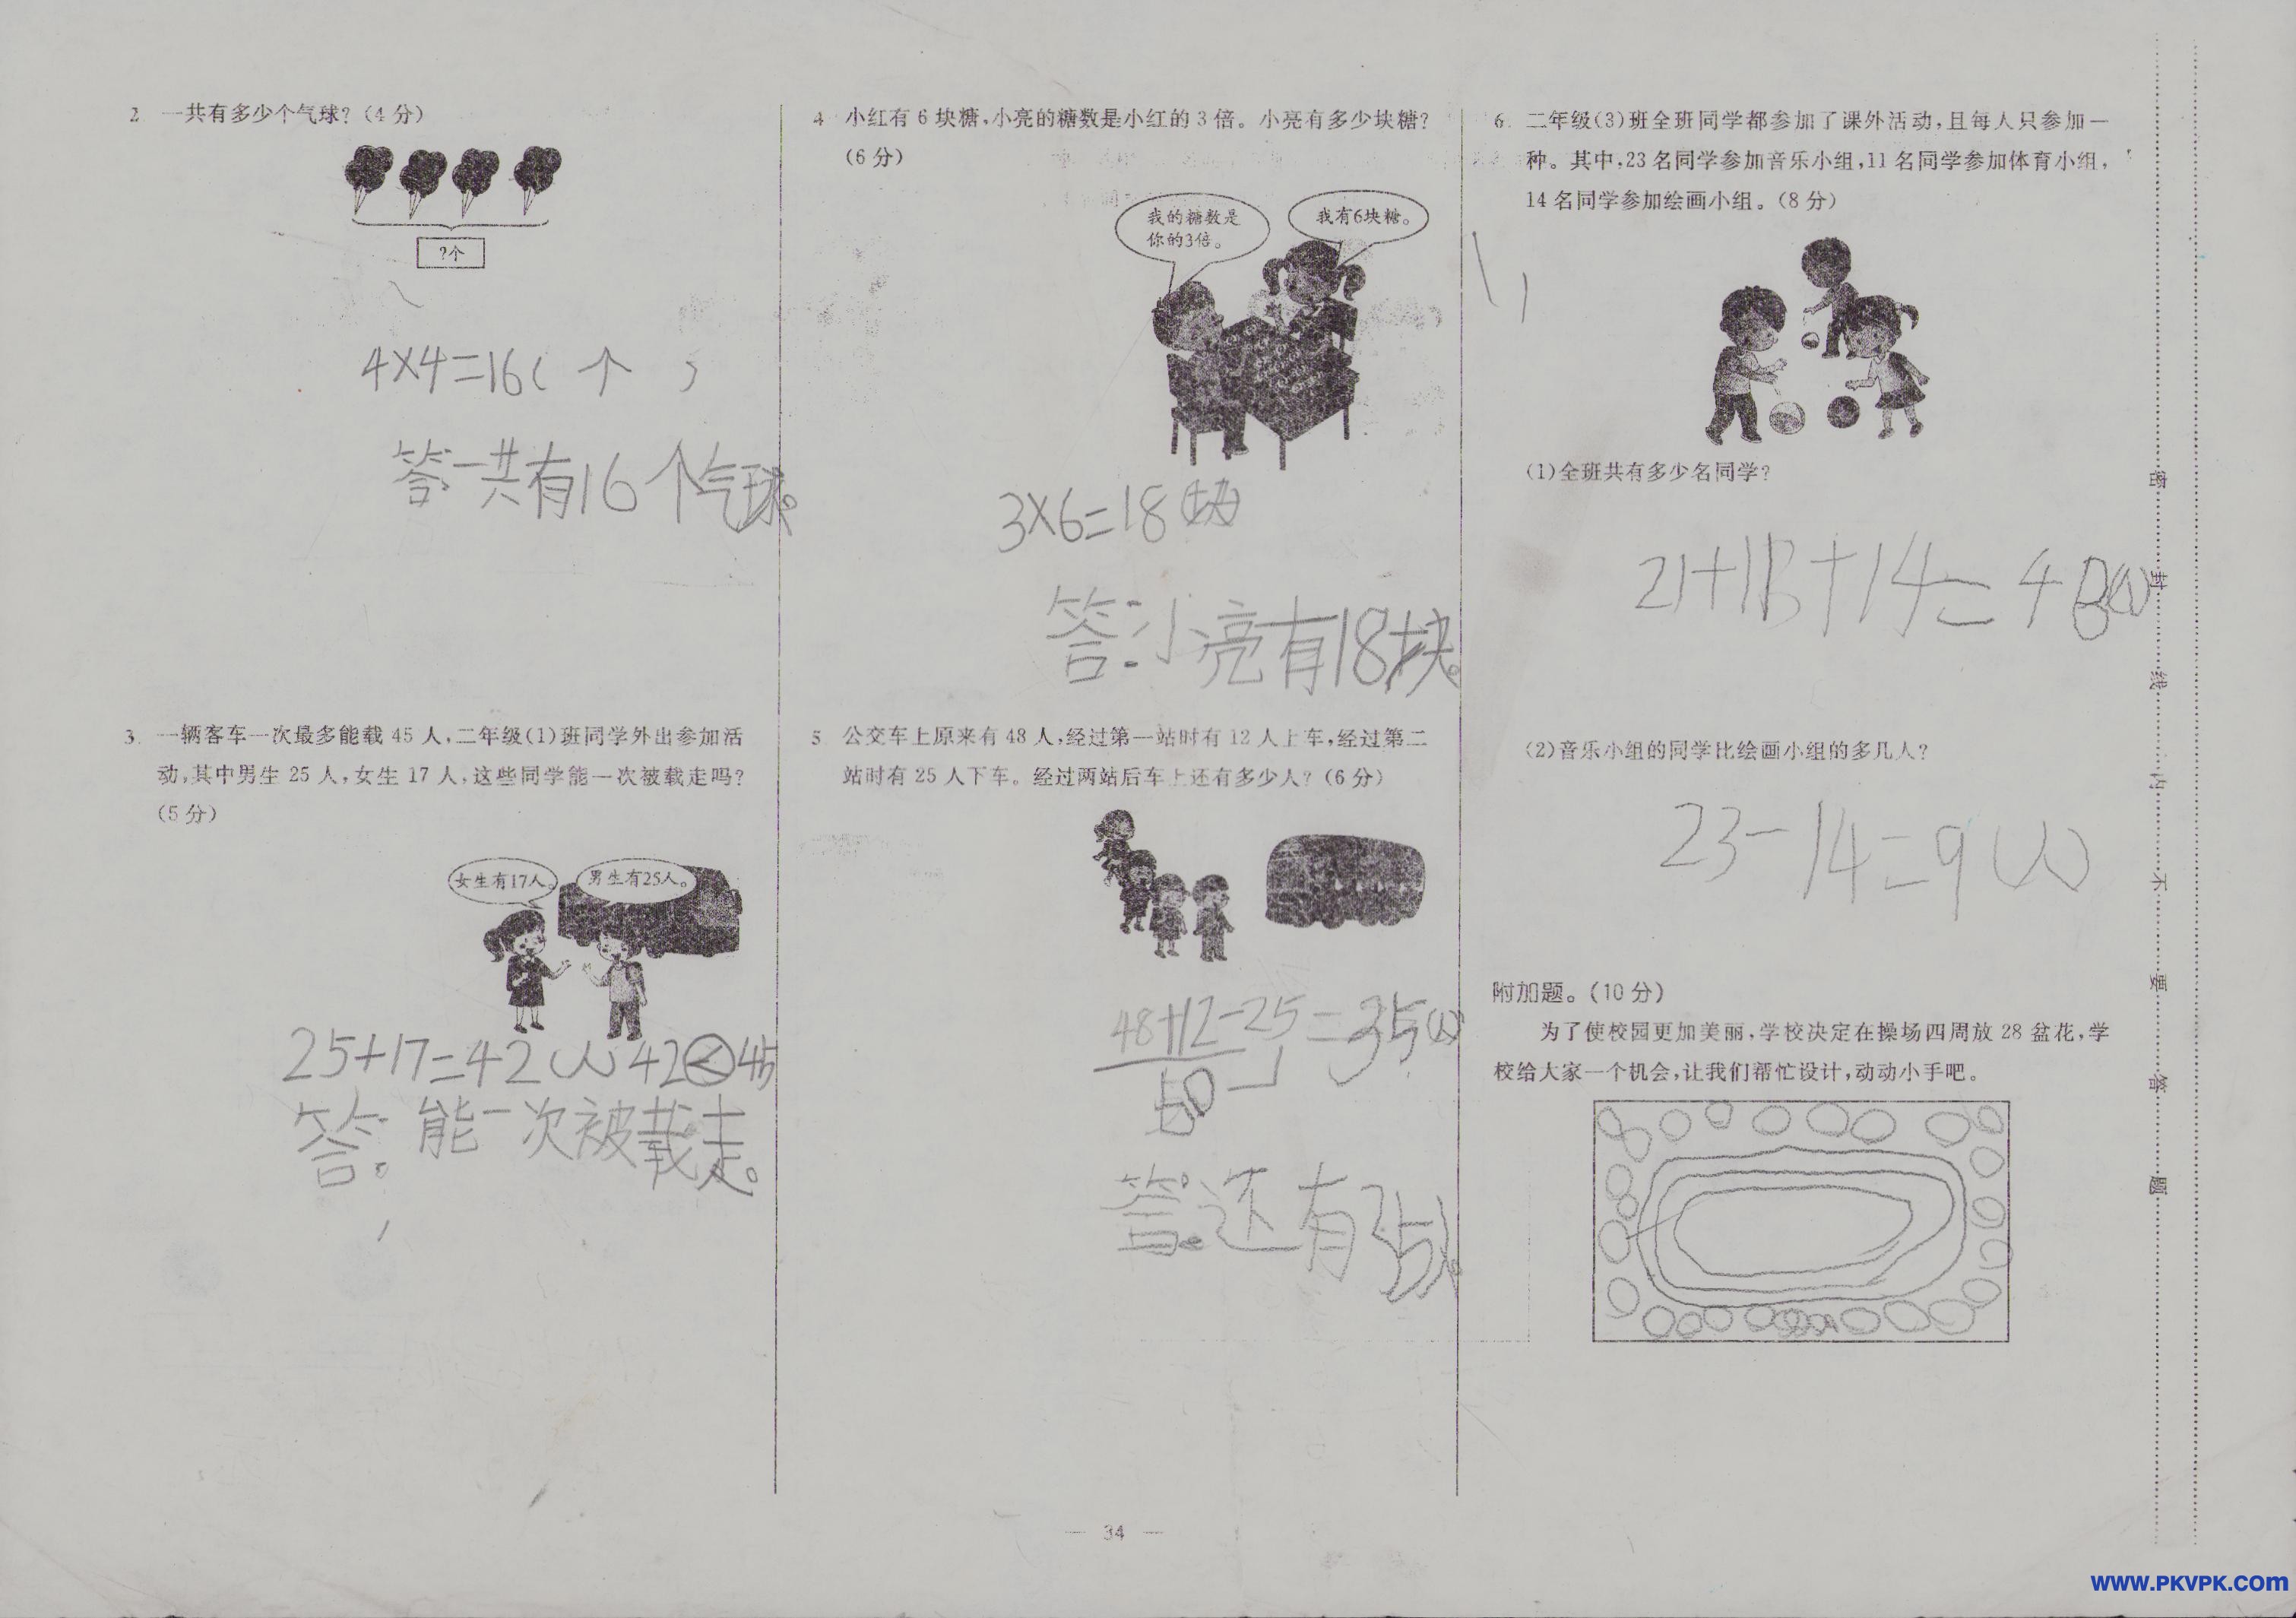 2. 一共有多少个气球？（4 分）
?个
4×4=16（ 个 ）
答:一共有16个气球。
3. 一辆客车一次最多能载 45 人,二年级(1)班同学外出参加活
动,其中男生 25 人,女生 17 人,这些同学能一次被载走吗？
（5 分）
女生有17人。
男生有25人。
25+17=42（人） 42<45
答: 能一次被载走。
4. 小红有 6 块糖,小亮的糖数是小红的 3 倍。小亮有多少块糖？
（6 分）
我的糖数是
你的3倍。
我有6块糖。
3×6=18（块）
答:小亮有18块。
5. 公交车上原来有 48 人,经过第一站时有 12 人上车,经过第二
站时有 25 人下车。经过两站后车上还有多少人？（6 分）
48+12-25=35（人）
60
答:还有35人。
6. 二年级(3)班全班同学都参加了课外活动,且每人只参加一
种。其中,23 名同学参加音乐小组,11 名同学参加体育小组,
14 名同学参加绘画小组。（8 分）
(1)全班共有多少名同学？
+14=48（人）
(2)音乐小组的同学比绘画小组的多几人？
23-14=9（人）
附加题。（10 分）
为了使校园更加美丽,学校决定在操场四周放 28 盆花,学
校给大家一个机会,让我们帮忙设计,动动小手吧。
密 封 线 内 不 要 答 题
— 34 —
www.PKVPK.com